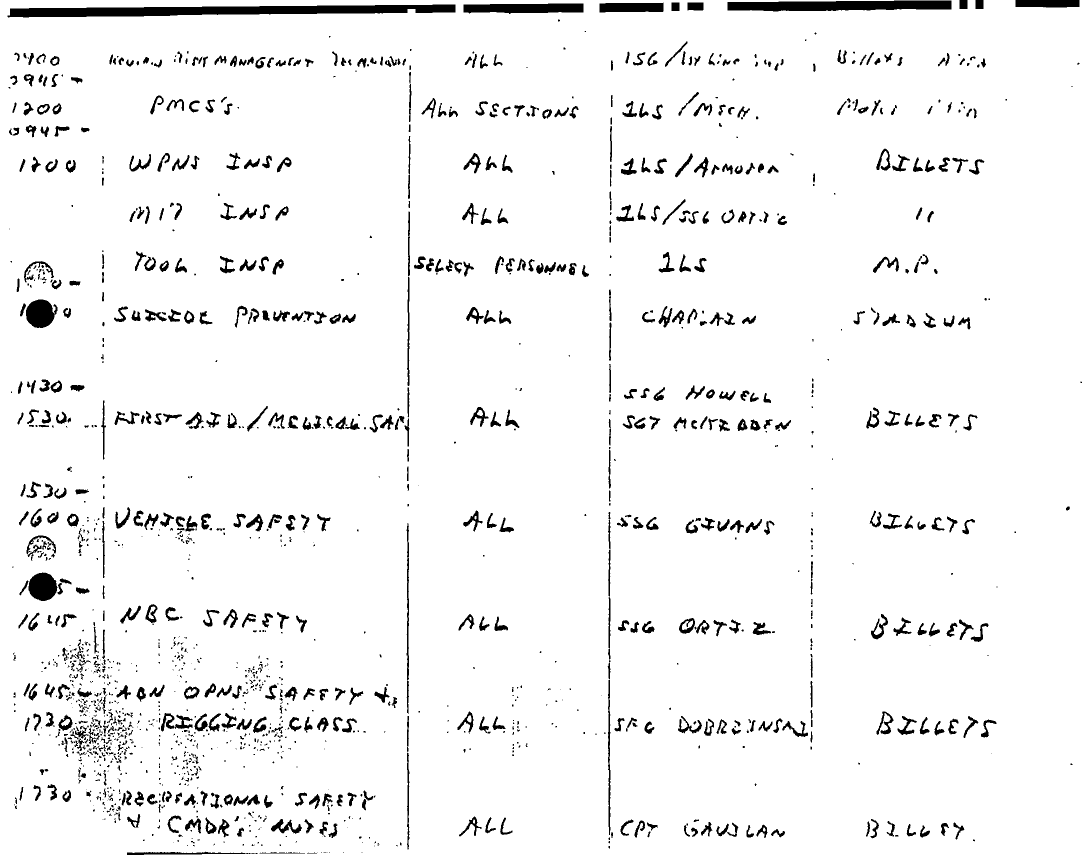 RISK MANAGEMENT ALL
0945 -
1200 PMCS'S ALL SECTIONS 1LS / MECH.
0945 -
1200 WPNS INSP ALL 1LS / ARMORER BILLETS
M17 INSP ALL 1LS/SSG ORTIZ "
TOOL INSP SELECT PERSONNEL 1LS M.P.
SUICIDE PREVENTION ALL CHAPLAIN STADIUM
1430 -
SSG HOWELL
1530 FIRST AID / MEDICAL SAF. ALL SGT BILLETS
1530 -
1600 VEHICLE SAFETY ALL SSG GIVANS BILLETS
1645 NBC SAFETY ALL SSG ORTIZ BILLETS
1645 - ABN OPNS SAFETY &
1730 RIGGING CLASS ALL SFG DOBRZINSKI BILLETS
1730 - RECREATIONAL SAFETY
& CMDR'S NOTES ALL CPT GAVILAN BILLET